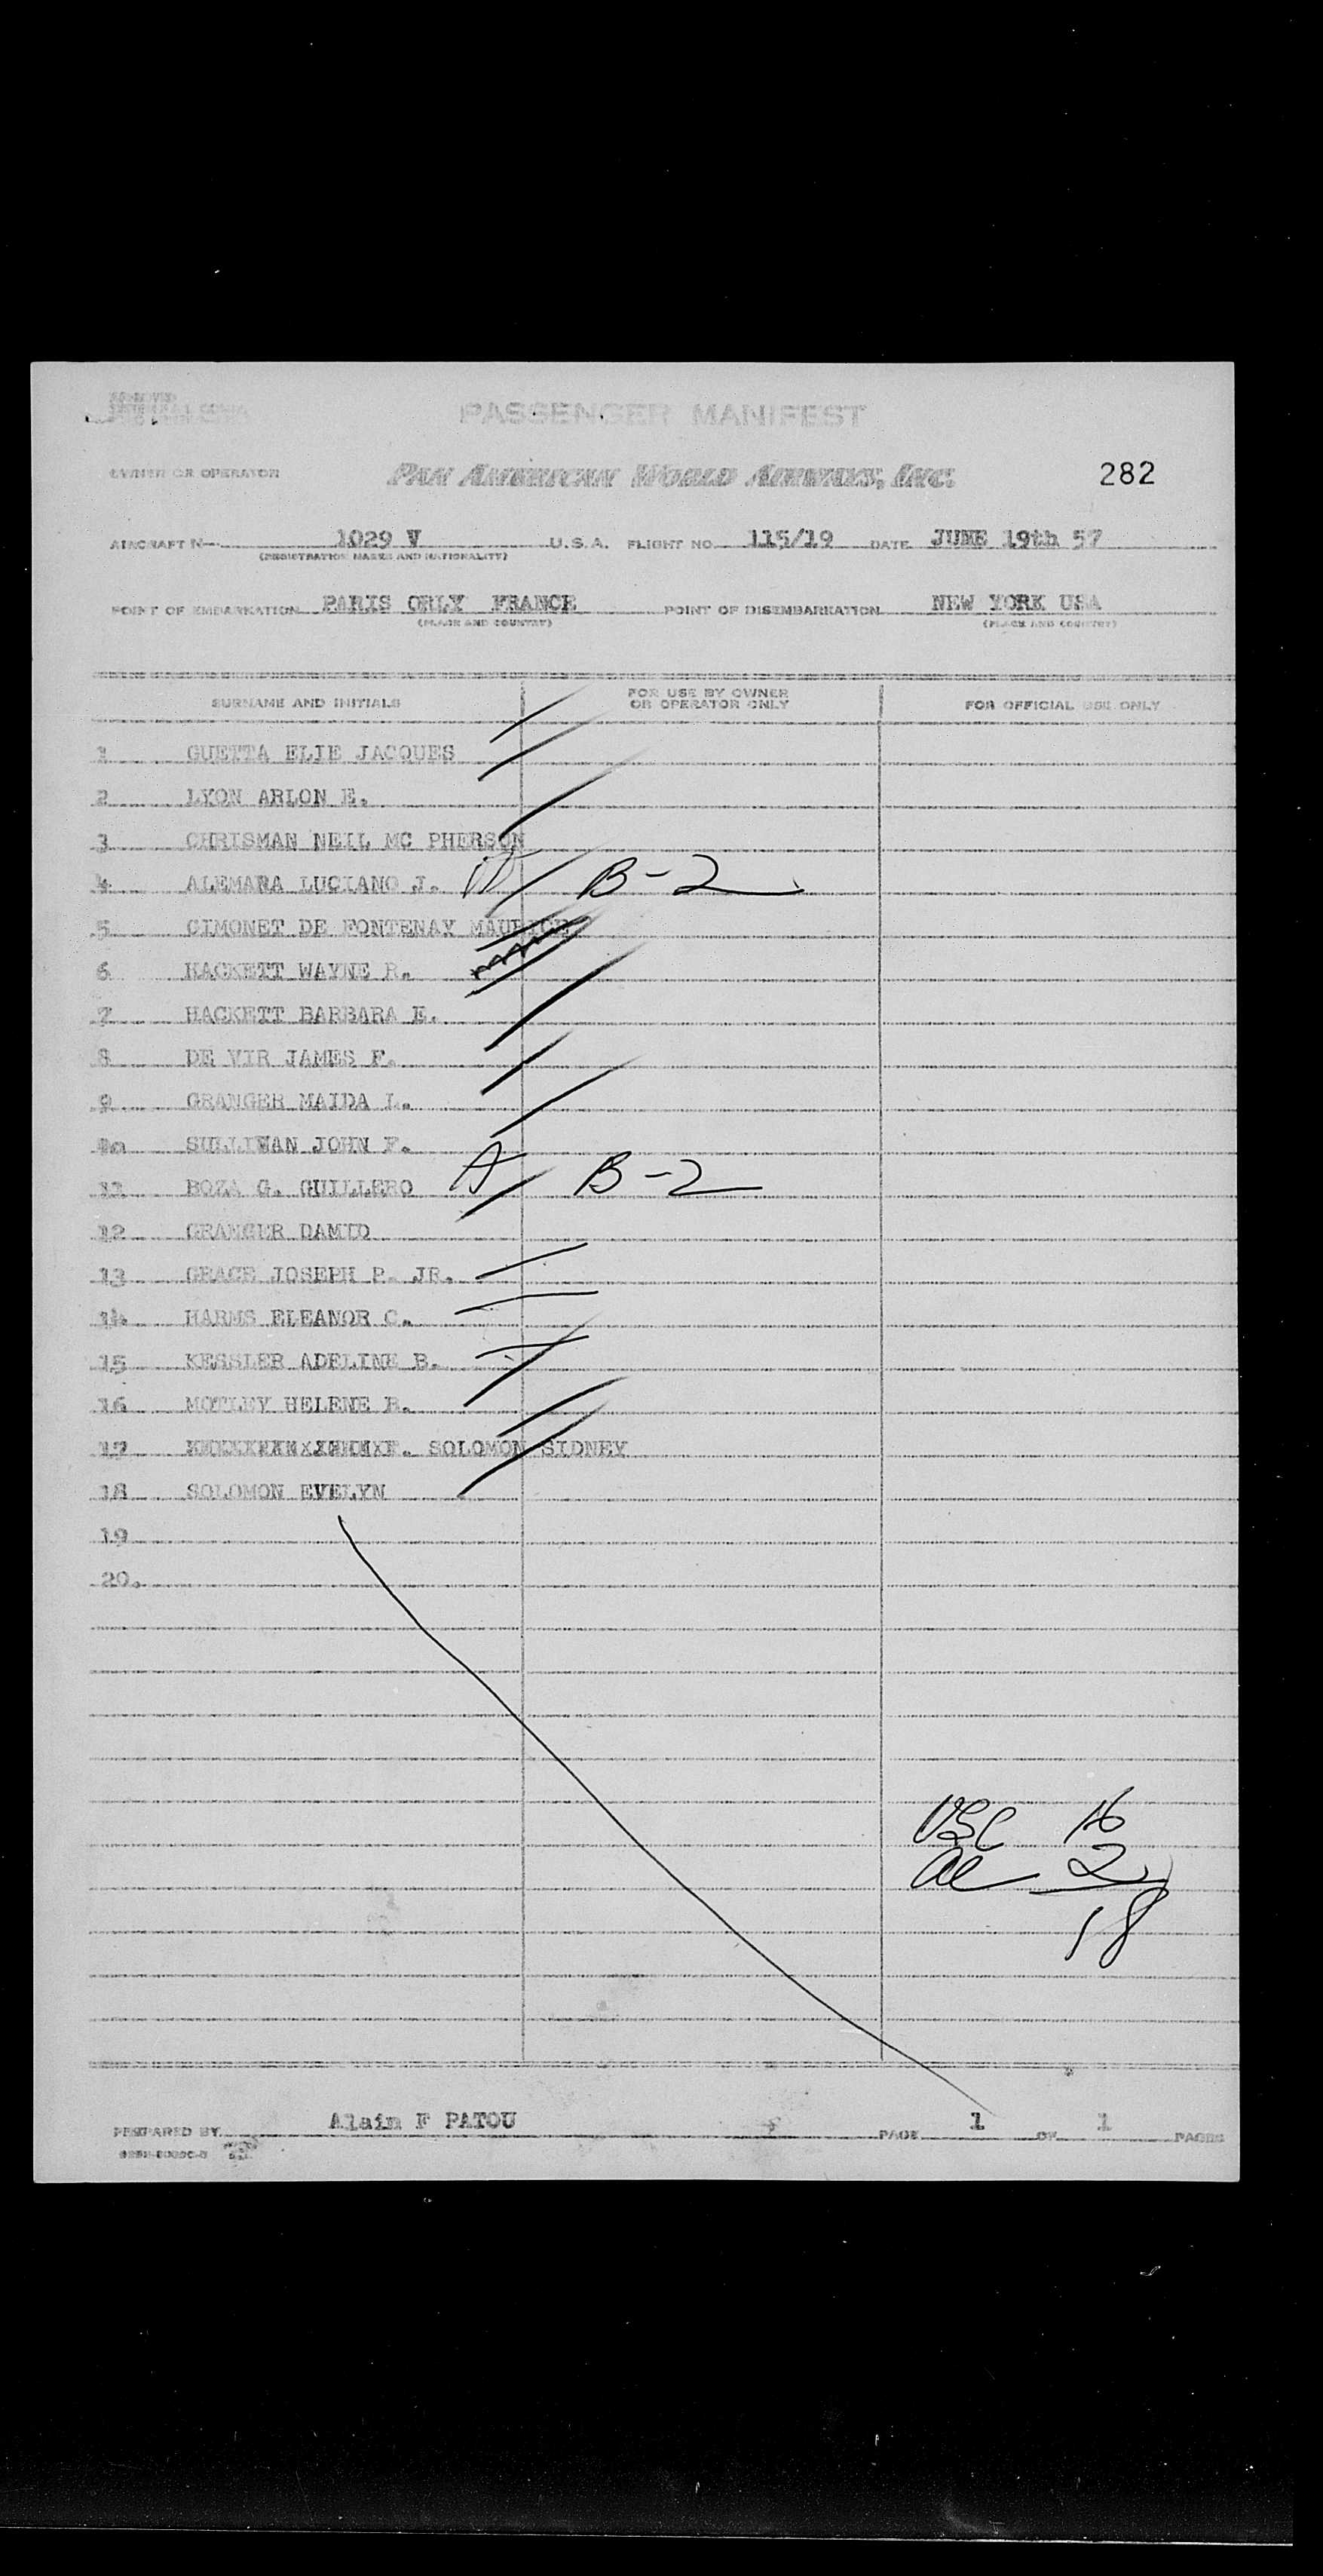 APPROVED
PASSENGER MANIFEST
OWNER OR OPERATOR PAN AMERICAN WORLD AIRWAYS, INC. 282
AIRCRAFT N— 1029 V U.S.A. FLIGHT NO. 115/19 DATE JUNE 19th 57
(REGISTRATION MARKS AND NATIONALITY)
POINT OF EMBARKATION PARIS ORLY FRANCE POINT OF DISEMBARKATION NEW YORK USA
(PLACE AND COUNTRY) (PLACE AND COUNTRY)
SURNAME AND INITIALS FOR USE BY OWNER OR OPERATOR ONLY FOR OFFICIAL USE ONLY
1 GUETTA ELIE JACQUES
2 LYON ARLON E.
3 CHRISMAN NEIL MC PHERSON
4 ALEMARA LUCIANO J. B-2
5 CIMONET DE FONTENAY MAURICE
6 HACKETT WAYNE R.
7 HACKETT BARBARA E.
8 DE VIR JAMES F.
9 GRANGER MAIDA L.
10 SULLIWAN JOHN F.
11 BOZA G. GUILLERO A B-2
12 GRANGER DAMID
13 GRACE JOSEPH P. JR.
14 HARMS ELEANOR C.
15 KESSLER ADELINE B.
16 MOTLEY HELENE R.
17 SOLOMON SIDNEY
18 SOLOMON EVELYN
19
20.
USC 16
al 2
18
PREPARED BY Alain F PATOU PAGE 1 OF 1 PAGES